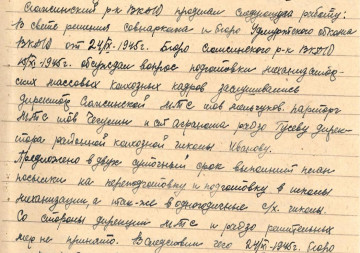 р-к ВКП/б/ проделал следующую работу:
В свете решения совнаркома и бюро Удмуртского обкома
ВКП/б/ от 24/XI-1945г. Бюро р-к ВКП/б/
обсуждал вопрос подготовки механизаторских
массовых колхозных кадров заслушивались
директор МТС тов парторг
МТС тов и ст агронома райзо Гусеву дирек-
тора районной колхозной школы. Иванову.
Предложено в двух суточный срок выполнить план
посылки на переподготовку и подготовку в школы
механизации, а так-же в одногодичные с/х. школы.
Со стороны дирекции МТС и райзо решительных
мер не принято. Вследствии чего бюро